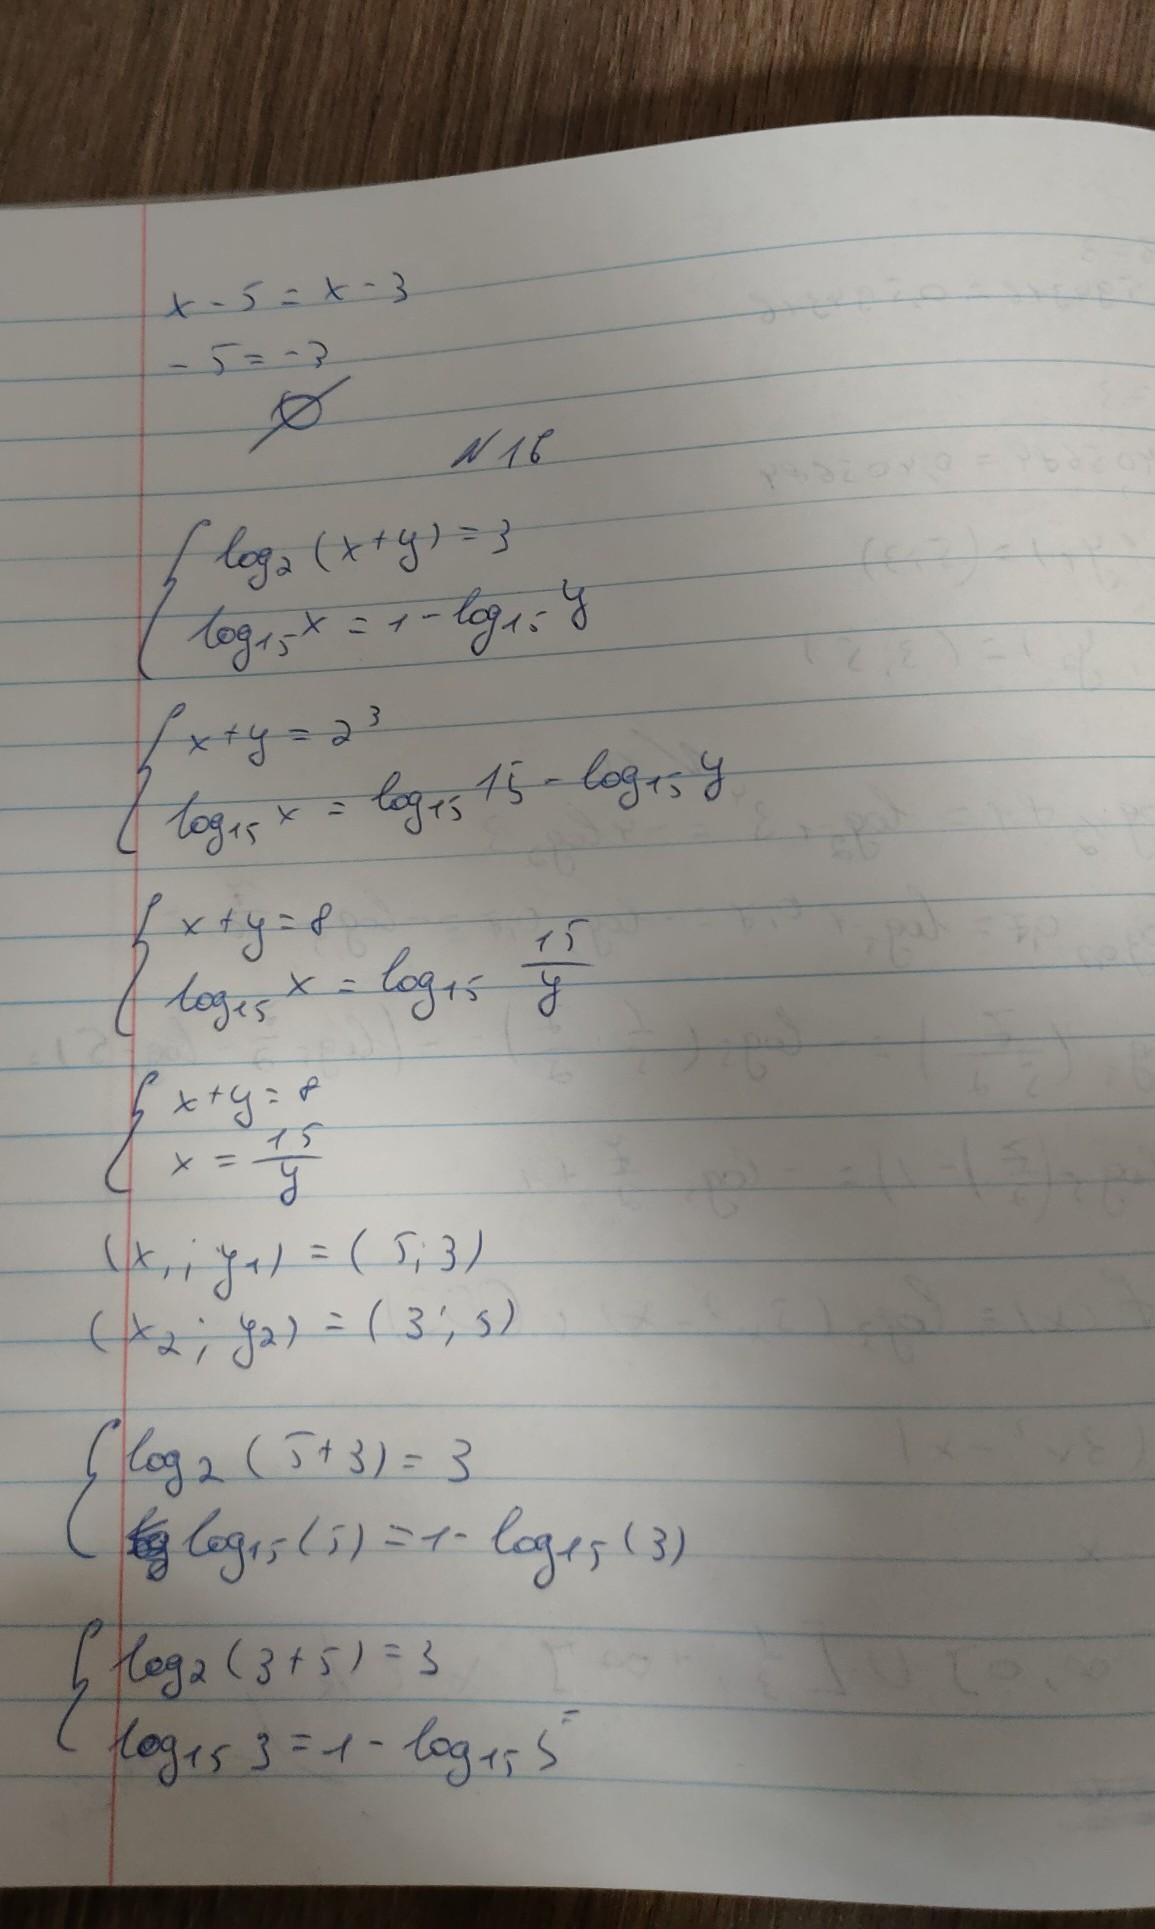 x - 5 = x - 3
- 5 = - 3
∅
N 16
{ log₂ (x+y) = 3
log₁₅ x = 1 - log₁₅ y
{ x + y = 2³
log₁₅ x = log₁₅ 15 - log₁₅ y
{ x + y = 8
log₁₅ x = log₁₅ 15/y
{ x + y = 8
x = 15/y
(x₁; y₁) = (5; 3)
(x₂; y₂) = (3; 5)
{ log₂ (5+3) = 3
log₁₅ (5) = 1 - log₁₅ (3)
{ log₂ (3+5) = 3
log₁₅ 3 = 1 - log₁₅ 5